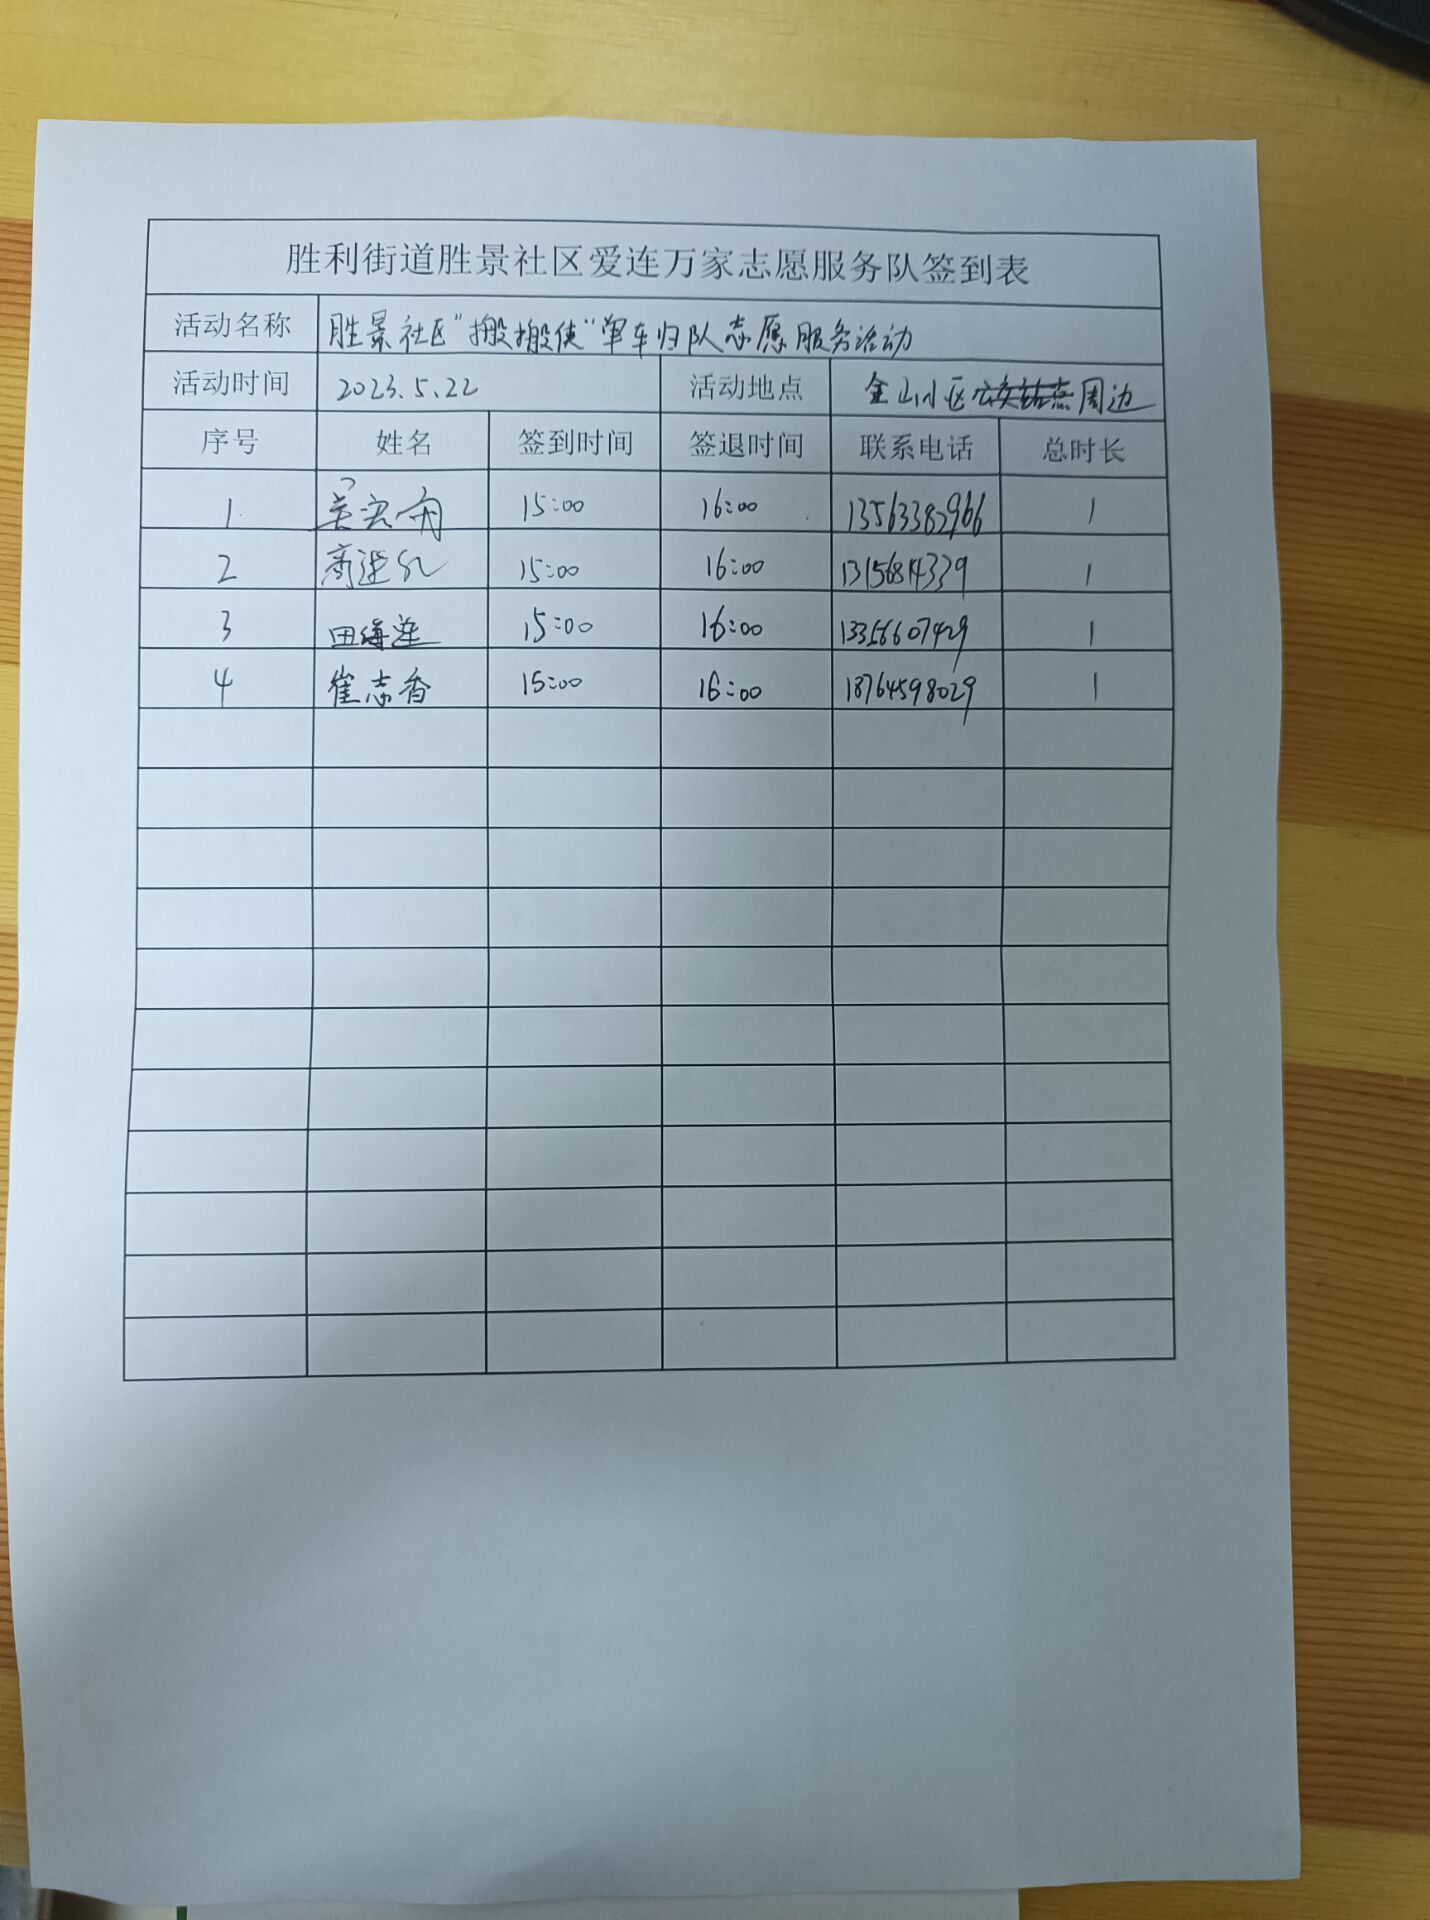 胜利街道胜景社区爱连万家志愿服务队签到表
活动名称 胜景社区"搬搬侠"单车归队志愿服务活动
活动时间 2023.5.22 活动地点 金山小区周边
序号 姓名 签到时间 签退时间 联系电话 总时长
1 15:00 16:00 13563382966 1
2 15:00 16:00 13156814339 1
3 田海莲 15:00 16:00 13356607429 1
4 崔志香 15:00 16:00 18764598029 1